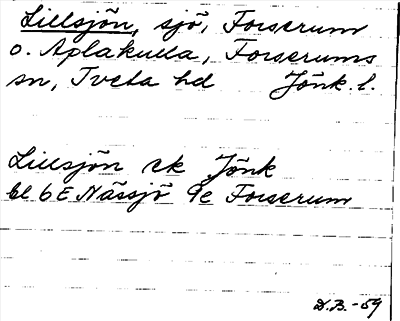 Lillsjön, sjö, Forserum
o. Aplakulla, Forserums
sn, Tveta hd Jönk. l.
Lillsjön ek Jönk
bl 6E Nässjö 9e Forserum
D.B.-59